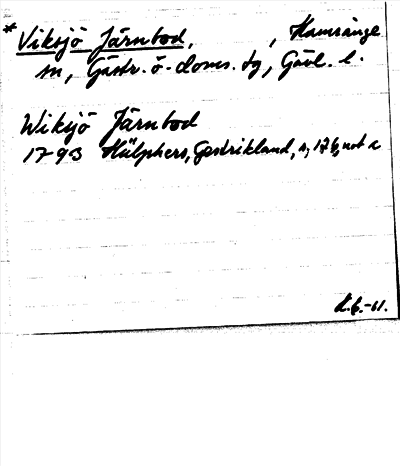 * Viksjö Järnbod, , Hamrånge
sn, Gästr. ö. doms. tg, Gävl. l.
Wiksjö Järnbod
1793 Hülphers, Gestrikland, s, 176, not c